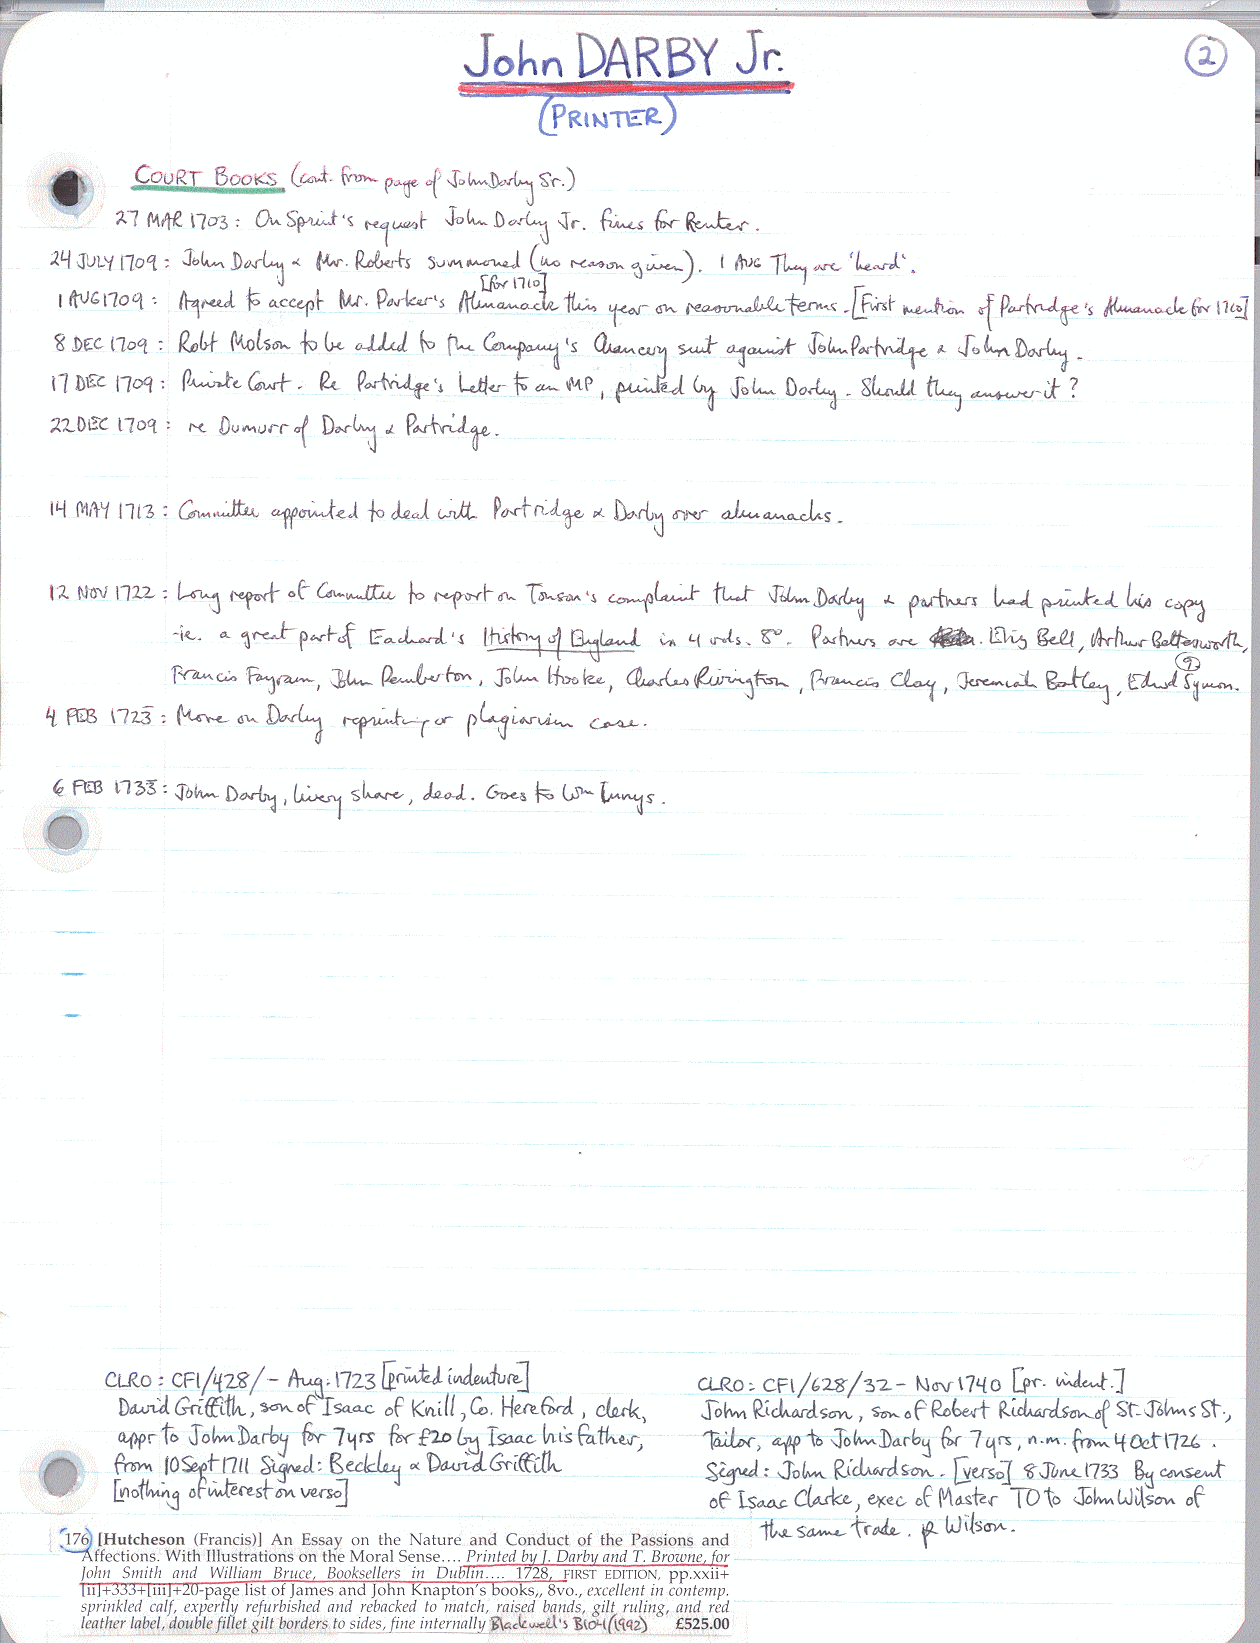 John DARBY Jr.
2
(PRINTER)
COURT BOOKS (cont. from page of John Darby Sr.)
27 MAR 1703: On Sprint's request John Darby Jr. fines for Renter.
24 JULY 1709: John Darby & Mr. Roberts summoned (no reason given). 1 AUG They are 'heard'.
[for 1710]
1 AUG 1709: Agreed to accept Mr. Parker's Almanack this year on reasonable terms. [First mention of Partridge's Almanack for 1710]
8 DEC 1709: Robt Molson to be added to the Company's Chancery suit against John Partridge & John Darby.
17 DEC 1709: Private Court. Re Partridge's Letter to an MP, printed by John Darby. Should they answer it?
22 DEC 1709: re Dumurr of Darby & Partridge.
14 MAY 1713: Committee appointed to deal with Partridge & Darby over almanacks.
12 NOV 1722: Long report of Committee to report on Tonson's complaint that John Darby & partners had printed his copy
-ie. a great part of Eachard's History of England in 4 vols. 8º. Partners are Eliz Bell, Arthur Bettesworth,
Francis Fayram, John Pemberton, John Hooke, Charles Rivington, Francis Clay, Jeremiah Batley, Edwd Symon.
(9)
4 FEB 1723: More on Darby reprinting or plagiarism case.
6 FEB 1733: John Darby, livery share, dead. Goes to Wm Innys.
CLRO: CF1/428/- Aug. 1723 [printed indenture]
David Griffith, son of Isaac of Knill, Co. Hereford, clerk,
appr to John Darby for 7yrs for £20 by Isaac his father,
from 10 Sept 1711 Signed: Beckley & David Griffith
[nothing of interest on verso]
CLRO: CF1/628/32 - Nov 1740 [pr. indent.]
John Richardson, son of Robert Richardson of St. Johns St.,
Tailor, app to John Darby for 7yrs, n.m. from 4 Oct 1726.
Signed: John Richardson. [verso] 8 June 1733 By consent
of Isaac Clarke, exec of Master TO to John Wilson of
the same trade. Wilson.
176 [Hutcheson (Francis)] An Essay on the Nature and Conduct of the Passions and
Affections. With Illustrations on the Moral Sense.... Printed by J. Darby and T. Browne, for
John Smith and William Bruce, Booksellers in Dublin.... 1728, FIRST EDITION, pp.xxii+
[ii]+333+[iii]+20-page list of James and John Knapton's books,, 8vo., excellent in contemp.
sprinkled calf, expertly refurbished and rebacked to match, raised bands, gilt ruling, and red
leather label, double fillet gilt borders to sides, fine internally Blackwell's B104 (1992) £525.00